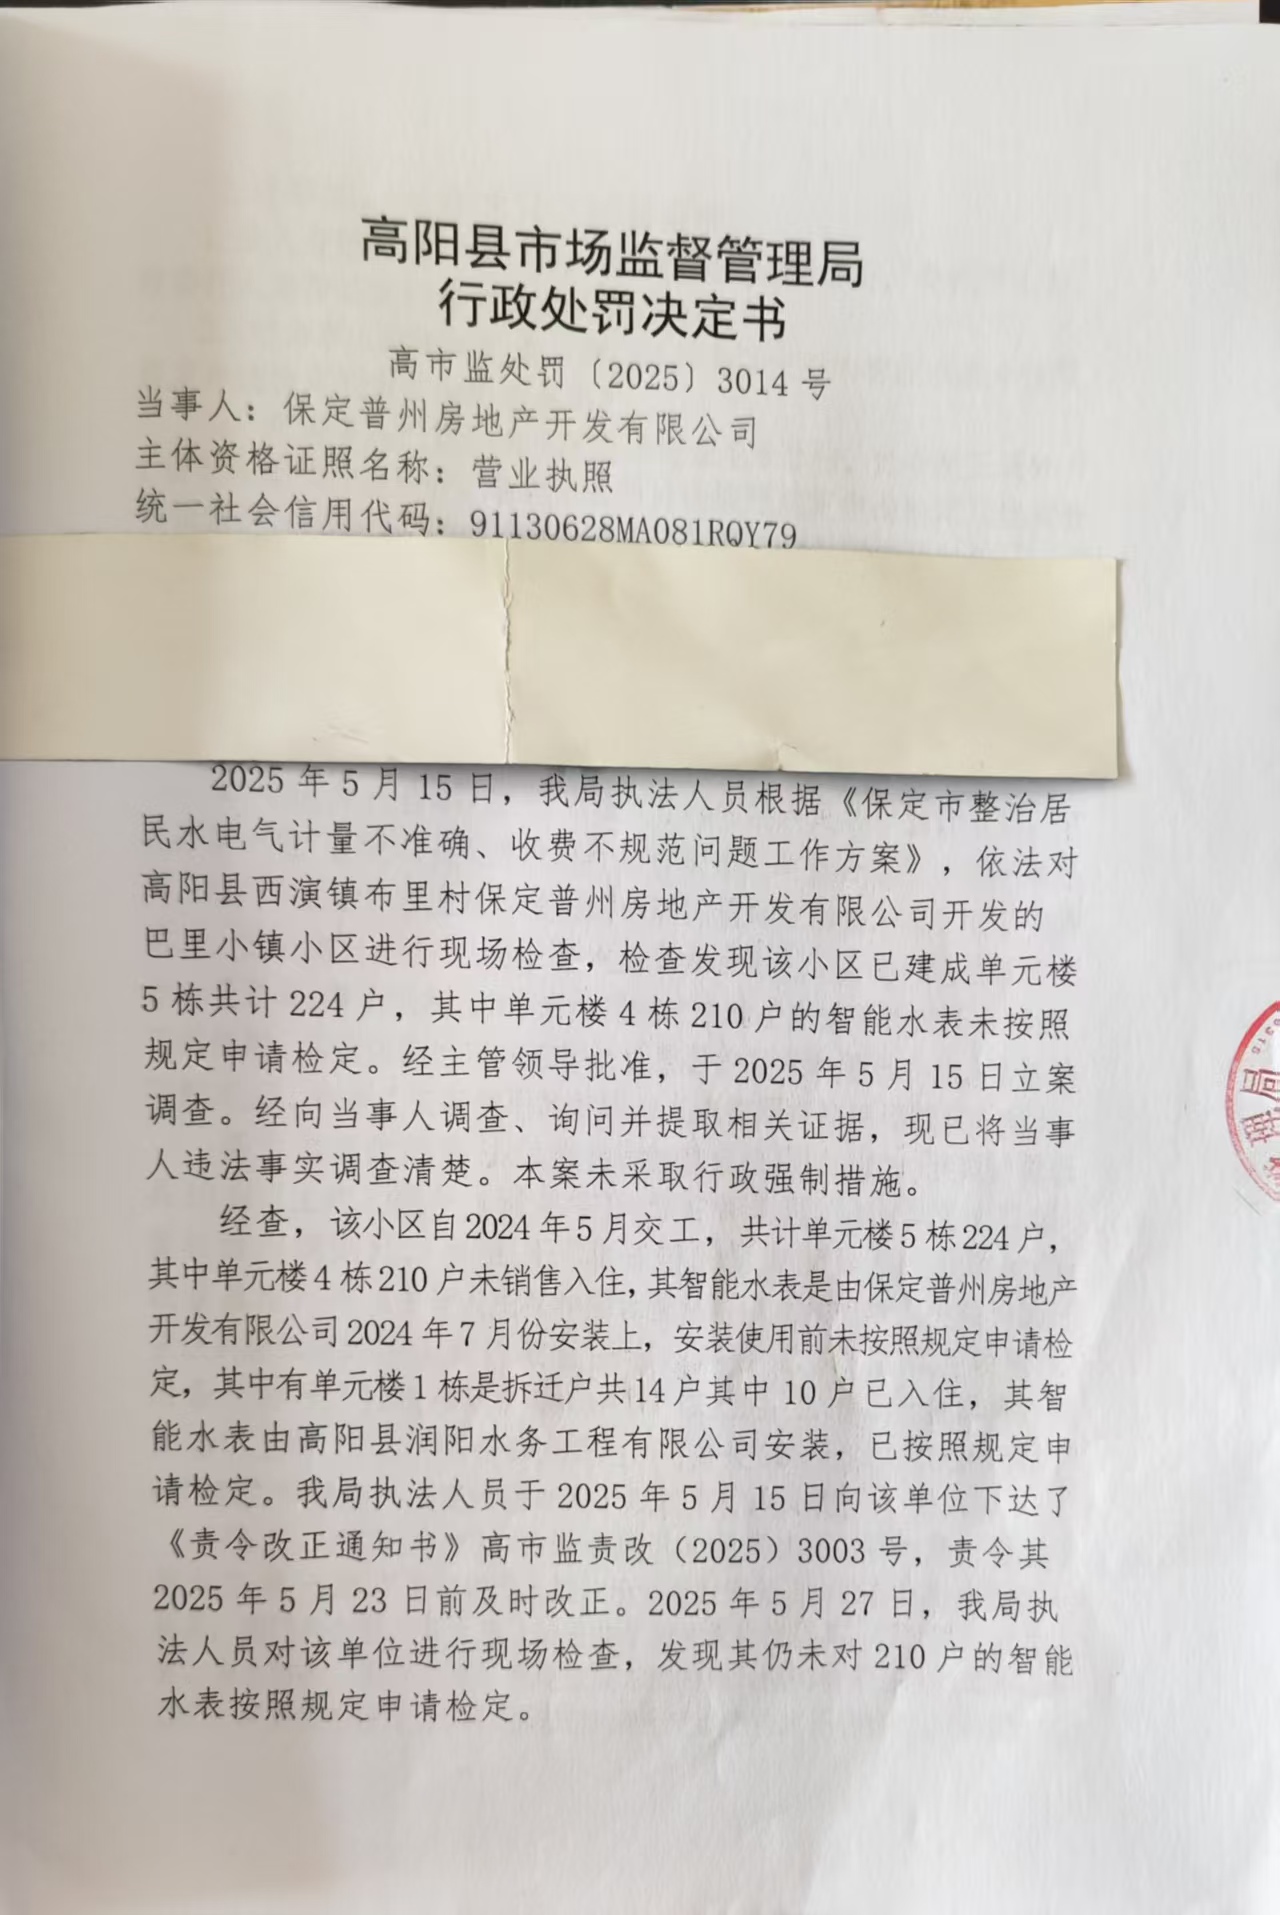 高阳县市场监督管理局
行政处罚决定书
高市监处罚〔2025〕3014号
当事人：保定普州房地产开发有限公司
主体资格证照名称：营业执照
统一社会信用代码：91130628MA081RQY79
2025年5月15日，我局执法人员根据《保定市整治居
民水电气计量不准确、收费不规范问题工作方案》，依法对
高阳县西演镇布里村保定普州房地产开发有限公司开发的
巴里小镇小区进行现场检查，检查发现该小区已建成单元楼
5栋共计224户，其中单元楼4栋210户的智能水表未按照
规定申请检定。经主管领导批准，于2025年5月15日立案
调查。经向当事人调查、询问并提取相关证据，现已将当事
人违法事实调查清楚。本案未采取行政强制措施。
经查，该小区自2024年5月交工，共计单元楼5栋224户，
其中单元楼4栋210户未销售入住，其智能水表是由保定普州房地产
开发有限公司2024年7月份安装上，安装使用前未按照规定申请检
定，其中有单元楼1栋是拆迁户共14户其中10户已入住，其智
能水表由高阳县润阳水务工程有限公司安装，已按照规定申
请检定。我局执法人员于2025年5月15日向该单位下达了
《责令改正通知书》高市监责改（2025）3003号，责令其
2025年5月23日前及时改正。2025年5月27日，我局执
法人员对该单位进行现场检查，发现其仍未对210户的智能
水表按照规定申请检定。
理局